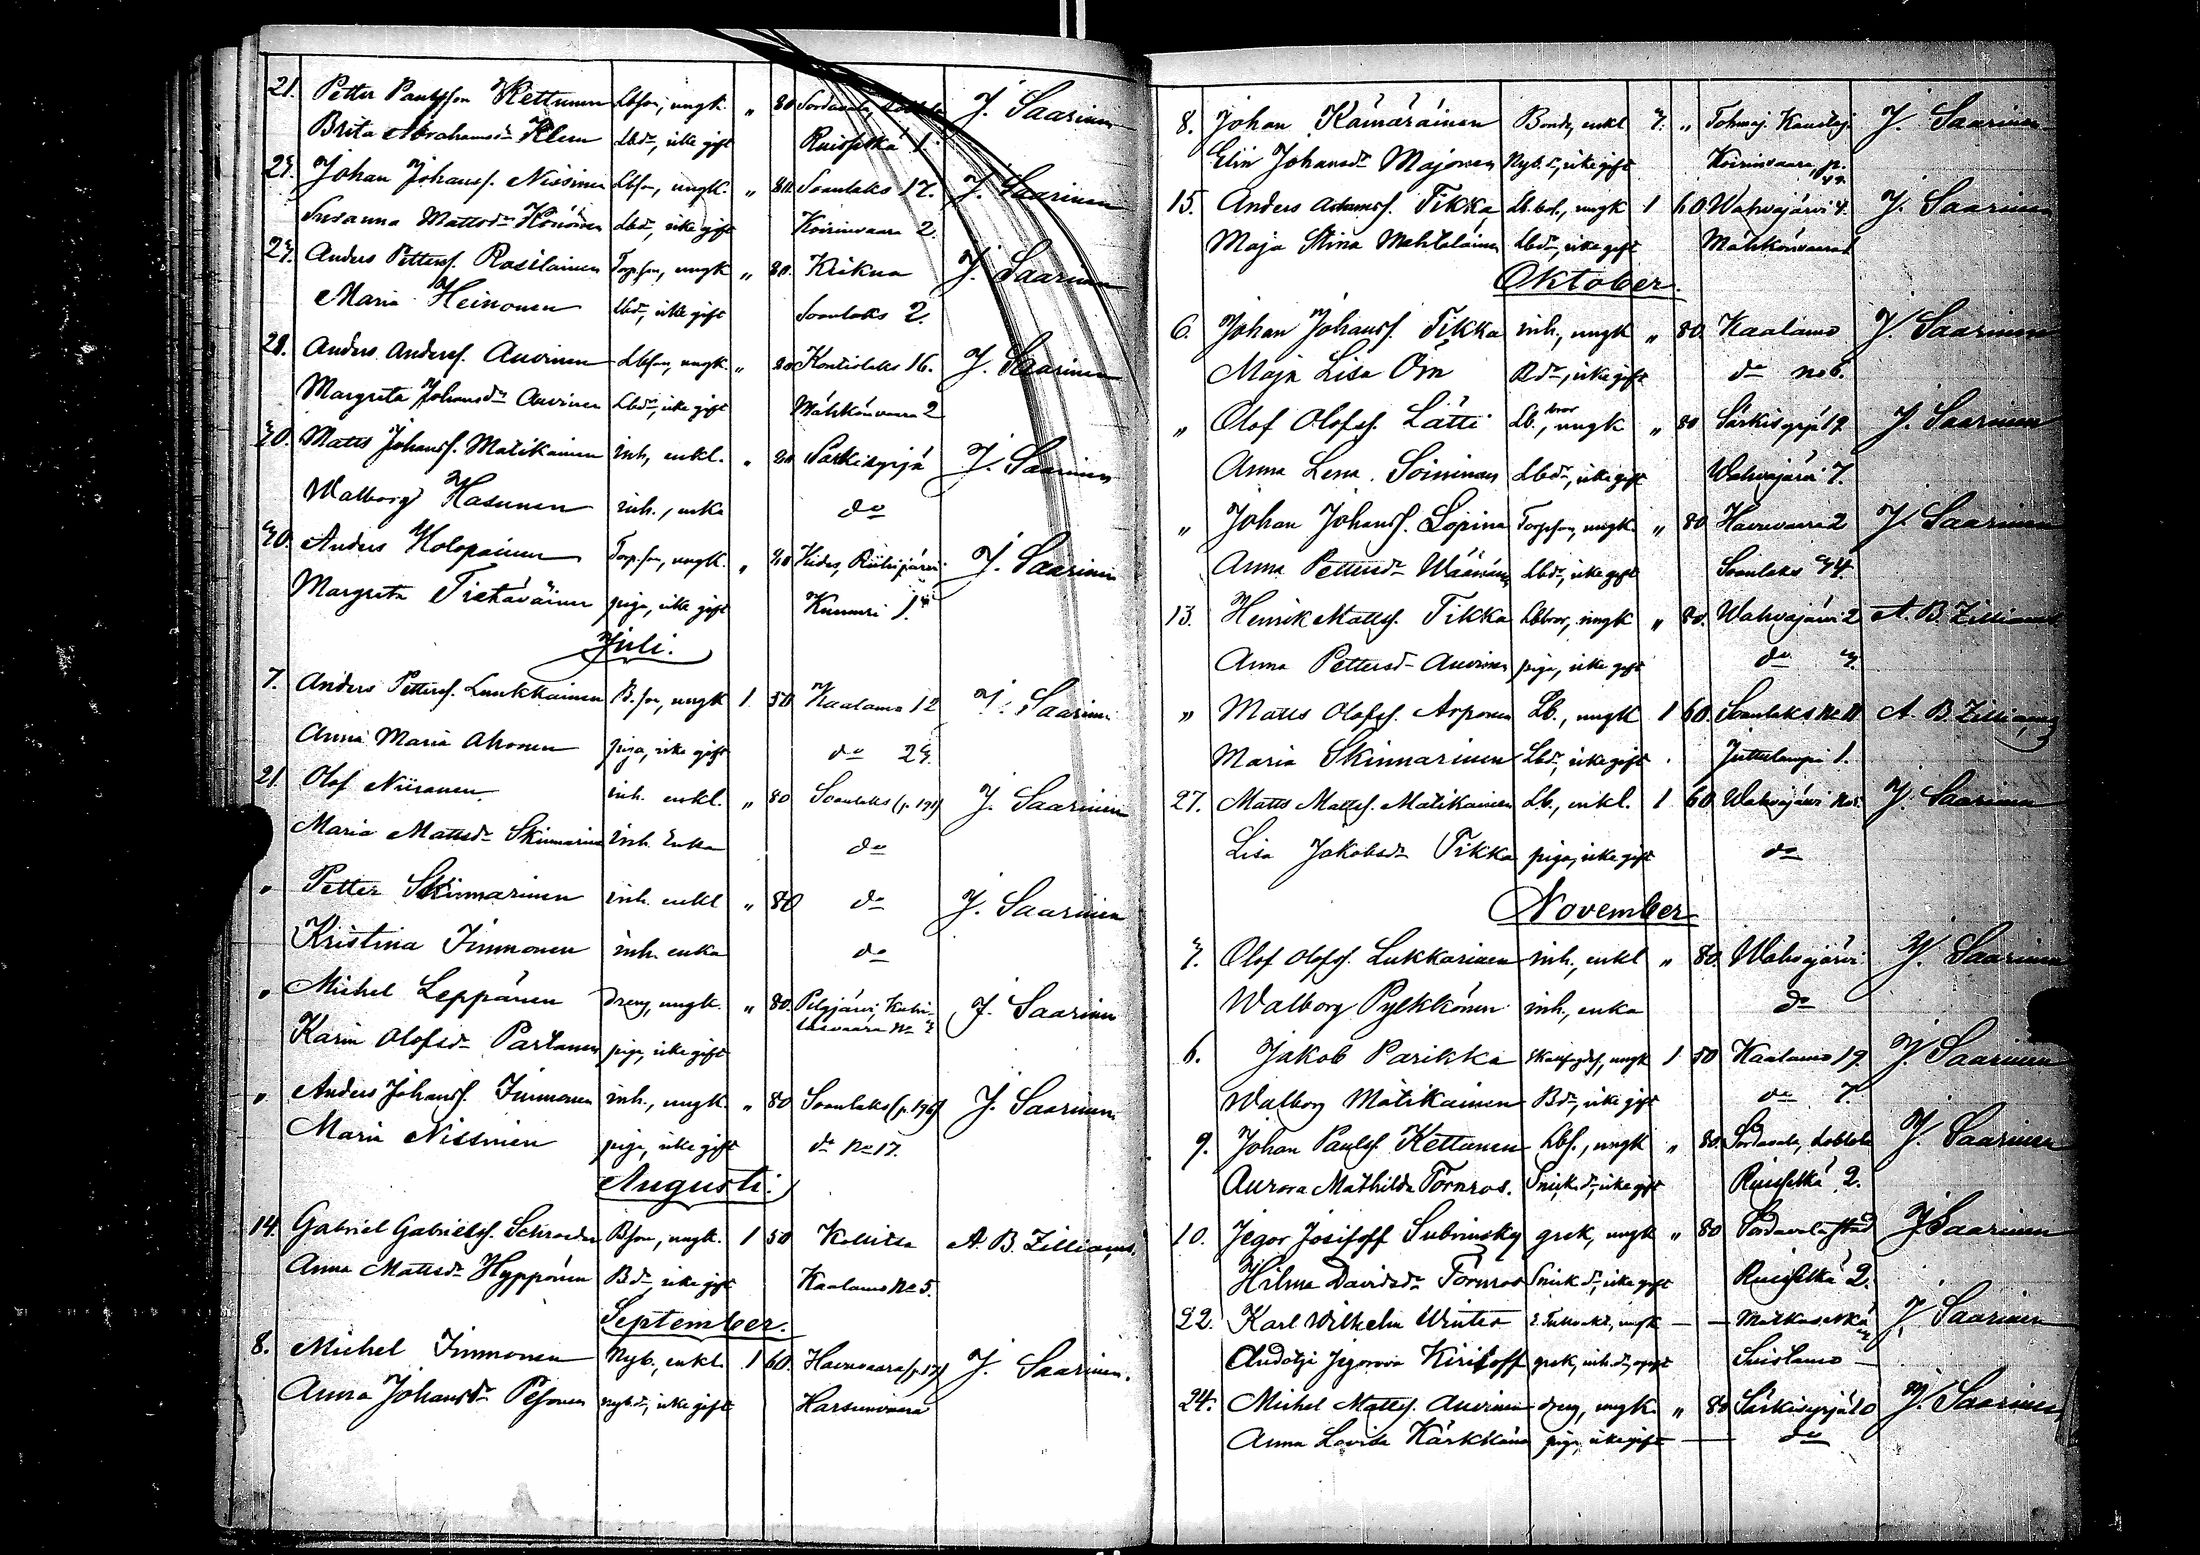 21. Petter Paulsson Kettunen Lbson, ungk. „ 80 Sordavala, J. Saarinen
Brita Abrahamsdr Klem Lbdr, icke gift Ruisselkä 1.
Johan Johansf. Nissinen Lbson, ungk. „ 80 Soanlaks 17. J. Saarinen
Susanna Mattsdr Lbdr, icke gift Koirinvaara 2.
Anders Pettersf. Rasilainen Torp.son, ungk „ 80. J. Saarinen
Maria Heinonen Lbdr, icke gift Soanlaks 2.
28. Anders Andersf. Auvinen Lbson, ungk. „ 80 Kontiolaks 16. J. Saarinen
Margreta Johansdr Auvinen Lbdr, icke gift Mähkönvaara 2
30. Matts Johansf. Matikainen inh, enkl. „ 80 Särkisyrjä J. Saarinen
Walborg Hasunen inh., enka do
30. Anders Holopainen Torp.son, ungk. „ 80 Kides, J. Saarinen
Margreta Tietäväinen piga, icke gift Kummi 1.
Juli.
7. Anders Pettersf. Luukkainen B.son, ungk 1 50 Kaalamo 12 J. Saarinen
Anna Maria Ahonen piga, icke gift do 23.
21. Olof Niiranen inh. enkl. „ 80 Soanlaks J. Saarinen
Maria Mattsdr Skinnarinen inh. Enka do
„ Petter Skinnarinen inh. enkl „ 80 do J. Saarinen
Kristina Immonen inh. enka do
„ Michel Leppänen dreng, ungk. „ 80. Pelgjärvi, J. Saarinen
Karin Olofsdr Partanen piga, icke gift
„ Anders Johansf. Immonen inh., ungk. „ 80 Soanlaks (p. 196) J. Saarinen
Maria Nissinen piga, icke gift do No 17.
Augusti.
14. Gabriel Gabrielsf. Schroeder Bson, ungk. 1 50 A. B. Zilliacus.
Anna Mattsdr Hyppönen Bdr, icke gift Kaalamo No 5.
September.
8. Michel Immonen Nyb., enkl. 1 60. Havuvaara J. Saarinen.
Anna Johansdr Pesonen nyb.dr, icke gift Harsunvaara
8. Johan Kämäräinen Bonde, enkl 3. „ Tohmaj. J. Saarinen
Elin Johansdr Majonen Nyb.dr, icke gift Koirinvaara, p.
15. Anders Tikka, ungk 1 60 Wahvajärvi 4. J. Saarinen
Maja Stina Lbdr, icke gift Mähkönvaara 1
Oktober.
6. Johan Johansf. Tikka inh., ungk „ 80. Kaalamo J. Saarinen
Maja Lisa Örn Bdr, icke gift do No 6.
„ Olof Olofsf. Lätti Lb. bror, ungk „ 80 Särkisyrjä J. Saarinen
Anna Lena Soininen Lbdr, icke gift Wahvajärvi 7.
„ Johan Johansf. Torpson, ungk „ 80. Havuvaara 2 J. Saarinen
Anna Pettersdr Wäänänen Lbdr, icke gift Soanlaks 34.
13. Henrik Mattsf. Tikka Lbbror, ungk „ 80. Wahvajärvi 2 A. B. Zilliacus
Anna Pettersdr Auvinen piga, icke gift do 3.
„ Matts Olofsf. Arponen Lb., ungk 1 60. Soanlaks No A. B. Zilliacus
Maria Skinnarinen Lbdr, icke gift Juttulampi 1.
27. Matts Mattsf. Matikainen Lb., enkl. 1 60 Wahvajärvi J. Saarinen
Lisa Jakobsdr Tikka piga, icke gift do
November
3. Olof Olofsf. Lukkarinen inh., enkl „ 80. Wahvajärvi J. Saarinen
Walborg Pylkkönen inh., enka do
6. Jakob Parikka ungk 1 50 Kaalamo 19. J. Saarinen
Walborg Matikainen Bdr, icke gift do 7.
9. Johan Paulsf. Kettunen Lbs., ungk „ 80. Sordavala, J. Saarinen
Aurora Mathilda Törnros. Snick.dr, icke gift Ruisselkä 2.
10. Jegor Josifoff Subrinsky grek, ungk „ 80 Sordavala stad J. Saarinen
Hilma Davidsdr Törnros Snick.dr, icke gift Ruisselkä 2.
22. Karl Wilhelm Winter ungk — — Matkaselkä J. Saarinen
Audotji Jegorova Kirisoff grek, Suistamo —
24. Michel Mattsf. Auvinen dreng, ungk „ 80 Särkisyrjä 10 J. Saarinen
Anna Lovisa Kärkkäinen piga, icke gift — do